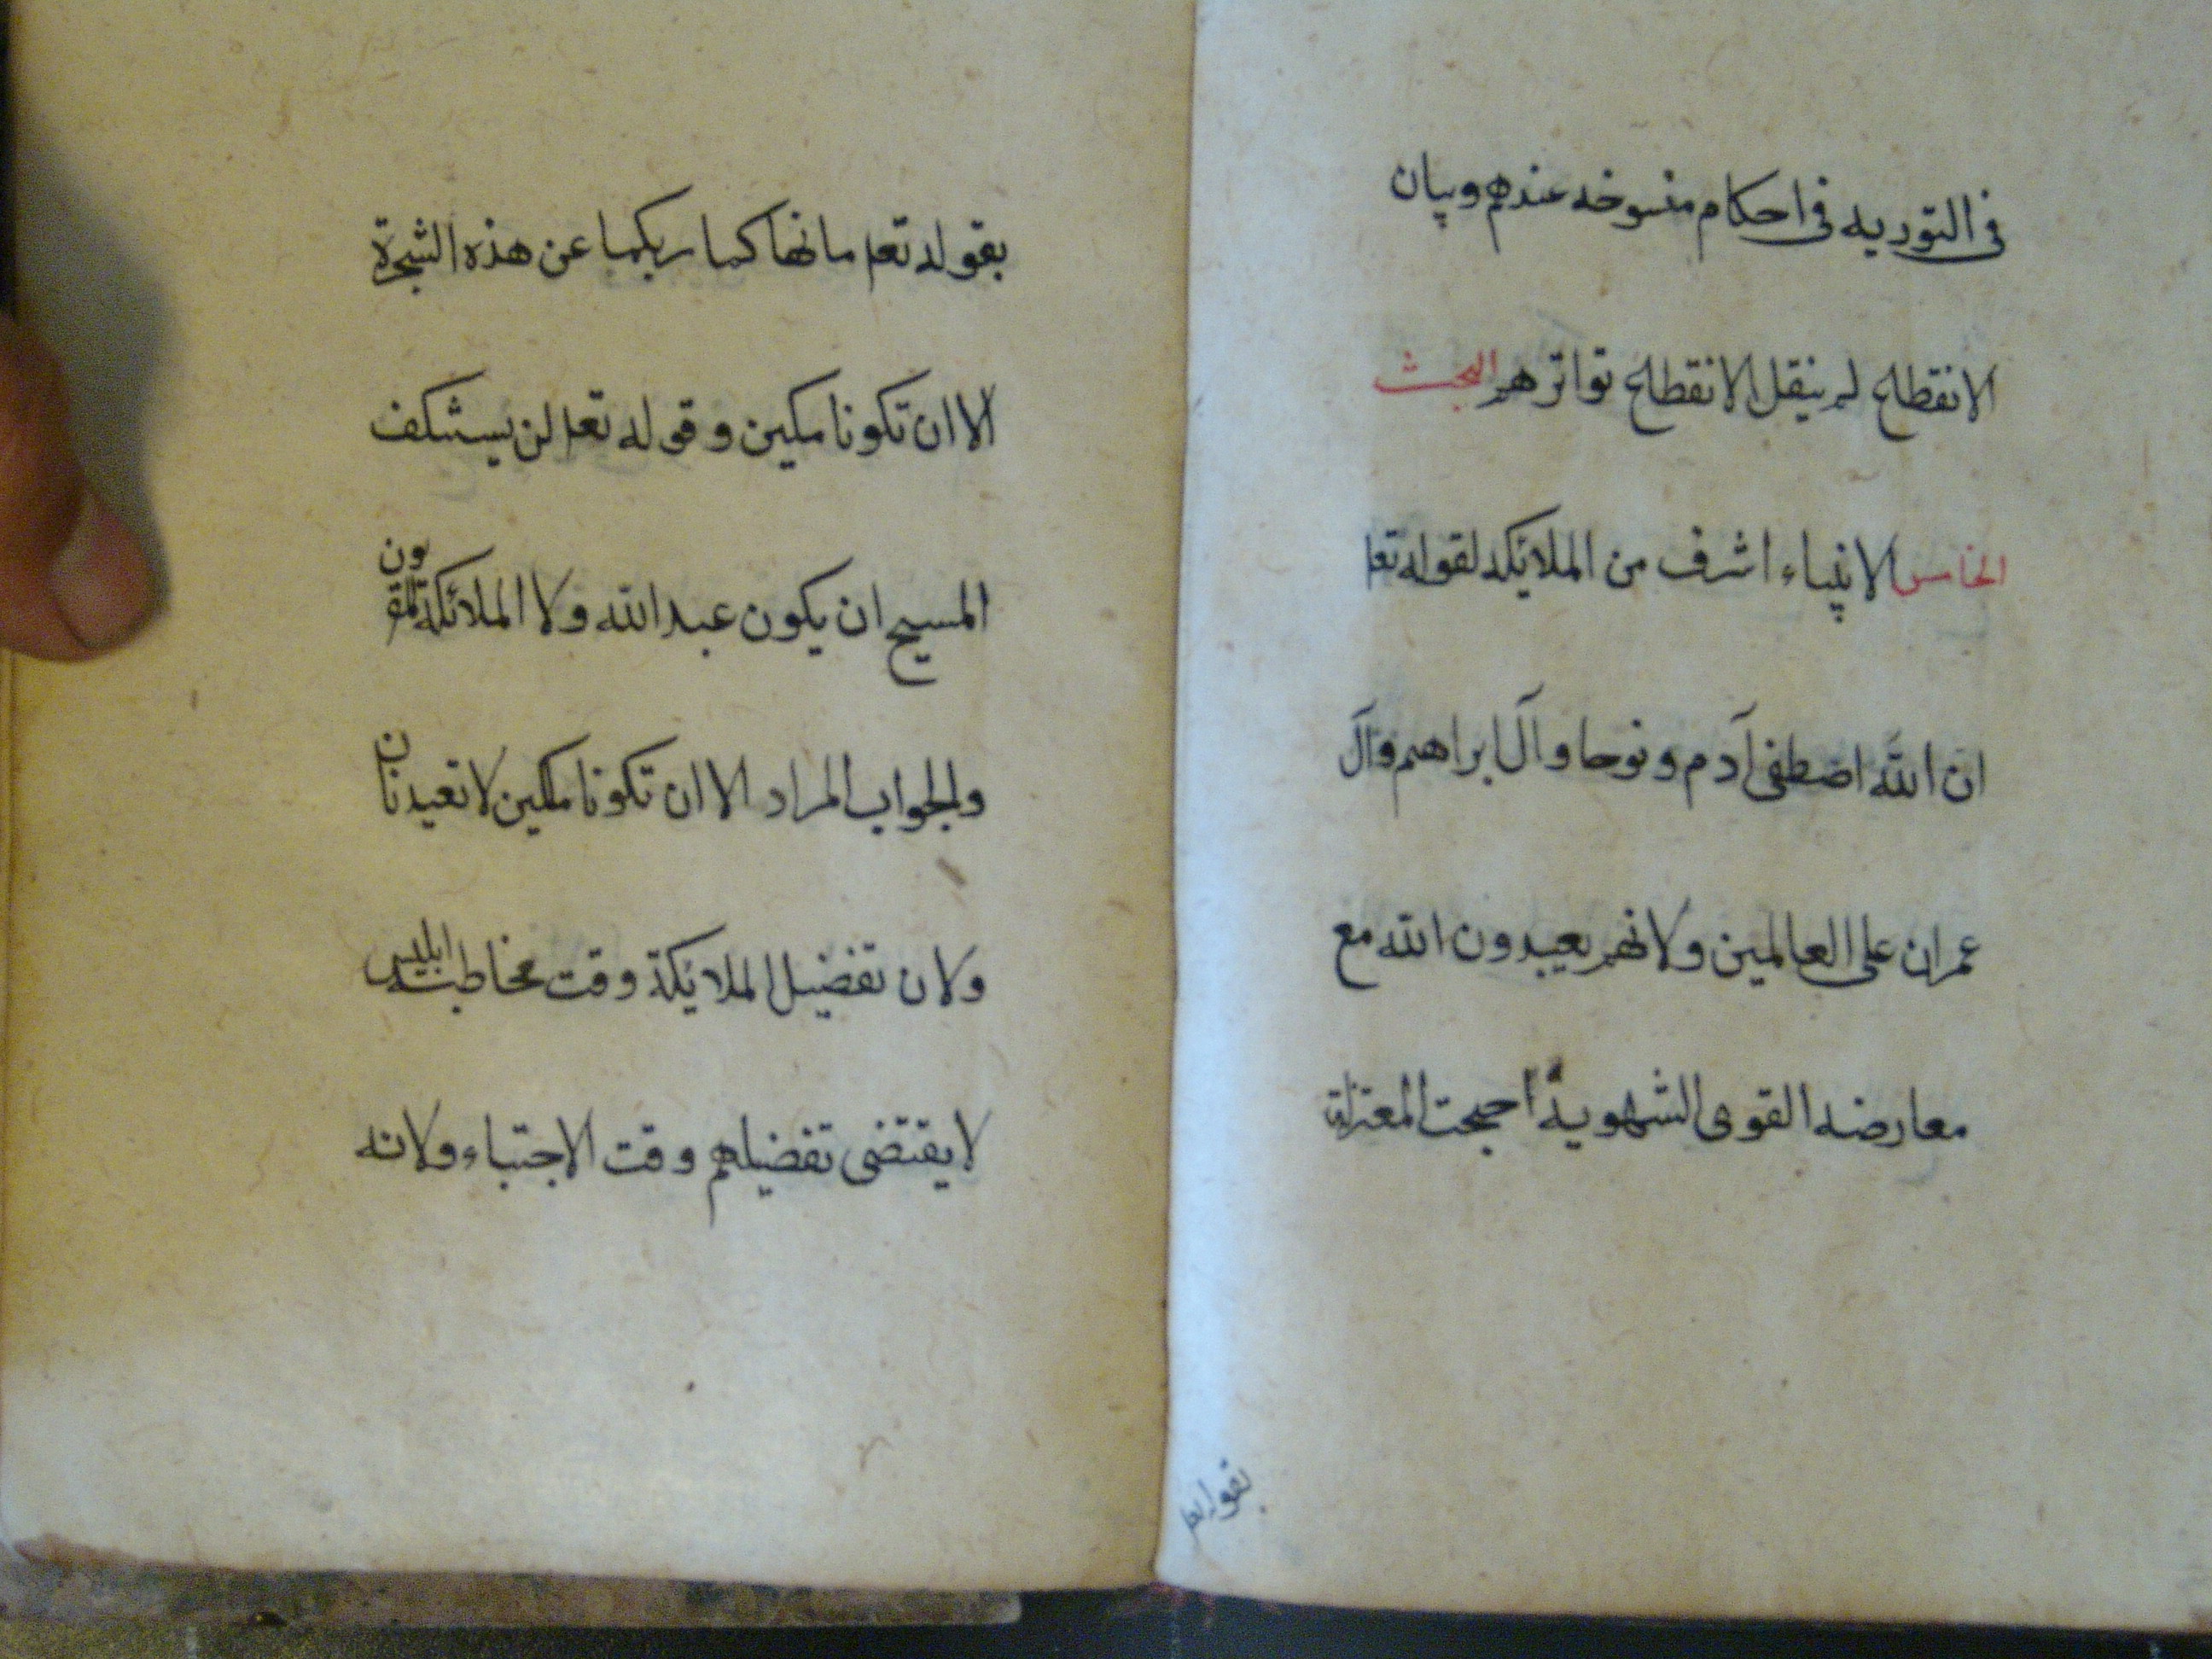 في التوريه في احكام منسوخه عندهم وبيان
الانقطاع لم ينقل الانقطاع تواترهم البحث
الخامس الانبياء اشرف من الملائكه لقوله تعا
ان الله اصطفى آدم ونوحا وآل ابراهيم وآل
عمران على العالمين ولانهم يعبدون الله مع
معارضه القوى الشهوية احتجت المعتزلة
بقوله تعا
بقوله تعا ما نهاكما ربكما عن هذه الشجرة
الا ان تكونا ملكين وقوله تعا لن يستنكف
المسيح ان يكون عبدا لله ولا الملائكة المقربون
والجواب المراد الا ان تكونا ملكين لا تعيدنان
ولان تفضيل الملائكة وقت مخاطبته ابليس
لا يقتضى تفضيلهم وقت الاجتباء ولانه